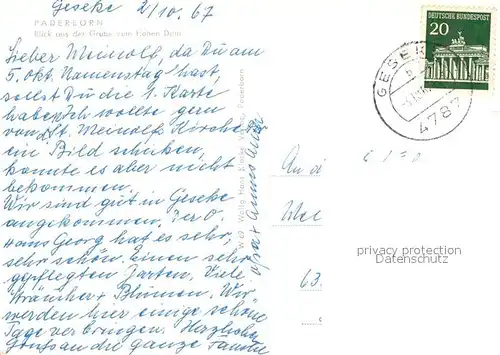 Geseke 2/10. 67
PADERBORN
Blick aus der Grube zum Hohen Dom
Lieber Meinolf, da Du am
5. Okt. Namenstag hast,
sollst Du die 1. Karte
haben. Ich wollte gern
von d. St. Meinolfs Kirche
ein Bild schicken,
konnte es aber nicht
bekommen.
Wir sind gut in Geseke
angekommen. Der O.
Hans Georg hat es sehr,
sehr schön. Einen sehr
gepflegten Garten. Viele
Sträucher + Blumen. Wir
werden hier einige schöne
Tage verbringen. Herzliche
Grüße an die ganze Familie
Opa + Omms
W 69 Hans Paderborn
DEUTSCHE BUNDESPOST
20
GESEKE
4787
An di
Mei
63.
privacy protection
Datenschutz